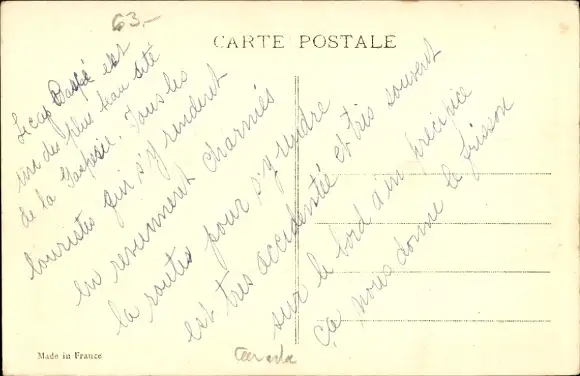 63.-
CARTE POSTALE
Le cap Gaspé est
un des plus beau site
de la Gaspésie. Tous les
touristes qui s'y rendent
en reviennent charmés
la routes pour s'y rendre
est tres accidentée et très souvent
sur le bord d'un précipice
ça nous donne le frisson
Made in France
Canada